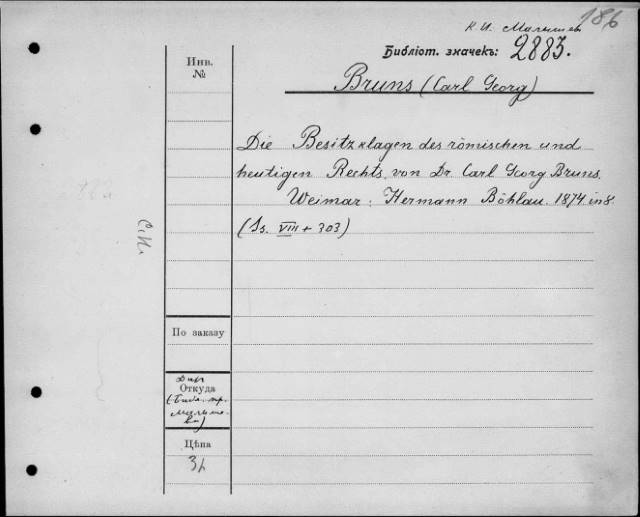 186
К. И. Малышев
Библіот. значекъ: 2883.
Инв.
№
Bruns (Carl Georg)
Die Besitzklagen des römischen und
heutigen Rechts, von Dr. Carl Georg Bruns.
Weimar: Hermann Böhlau. 1874. in 8.
(Ss. VIII + 303)
По заказу
Откуда
Цѣна